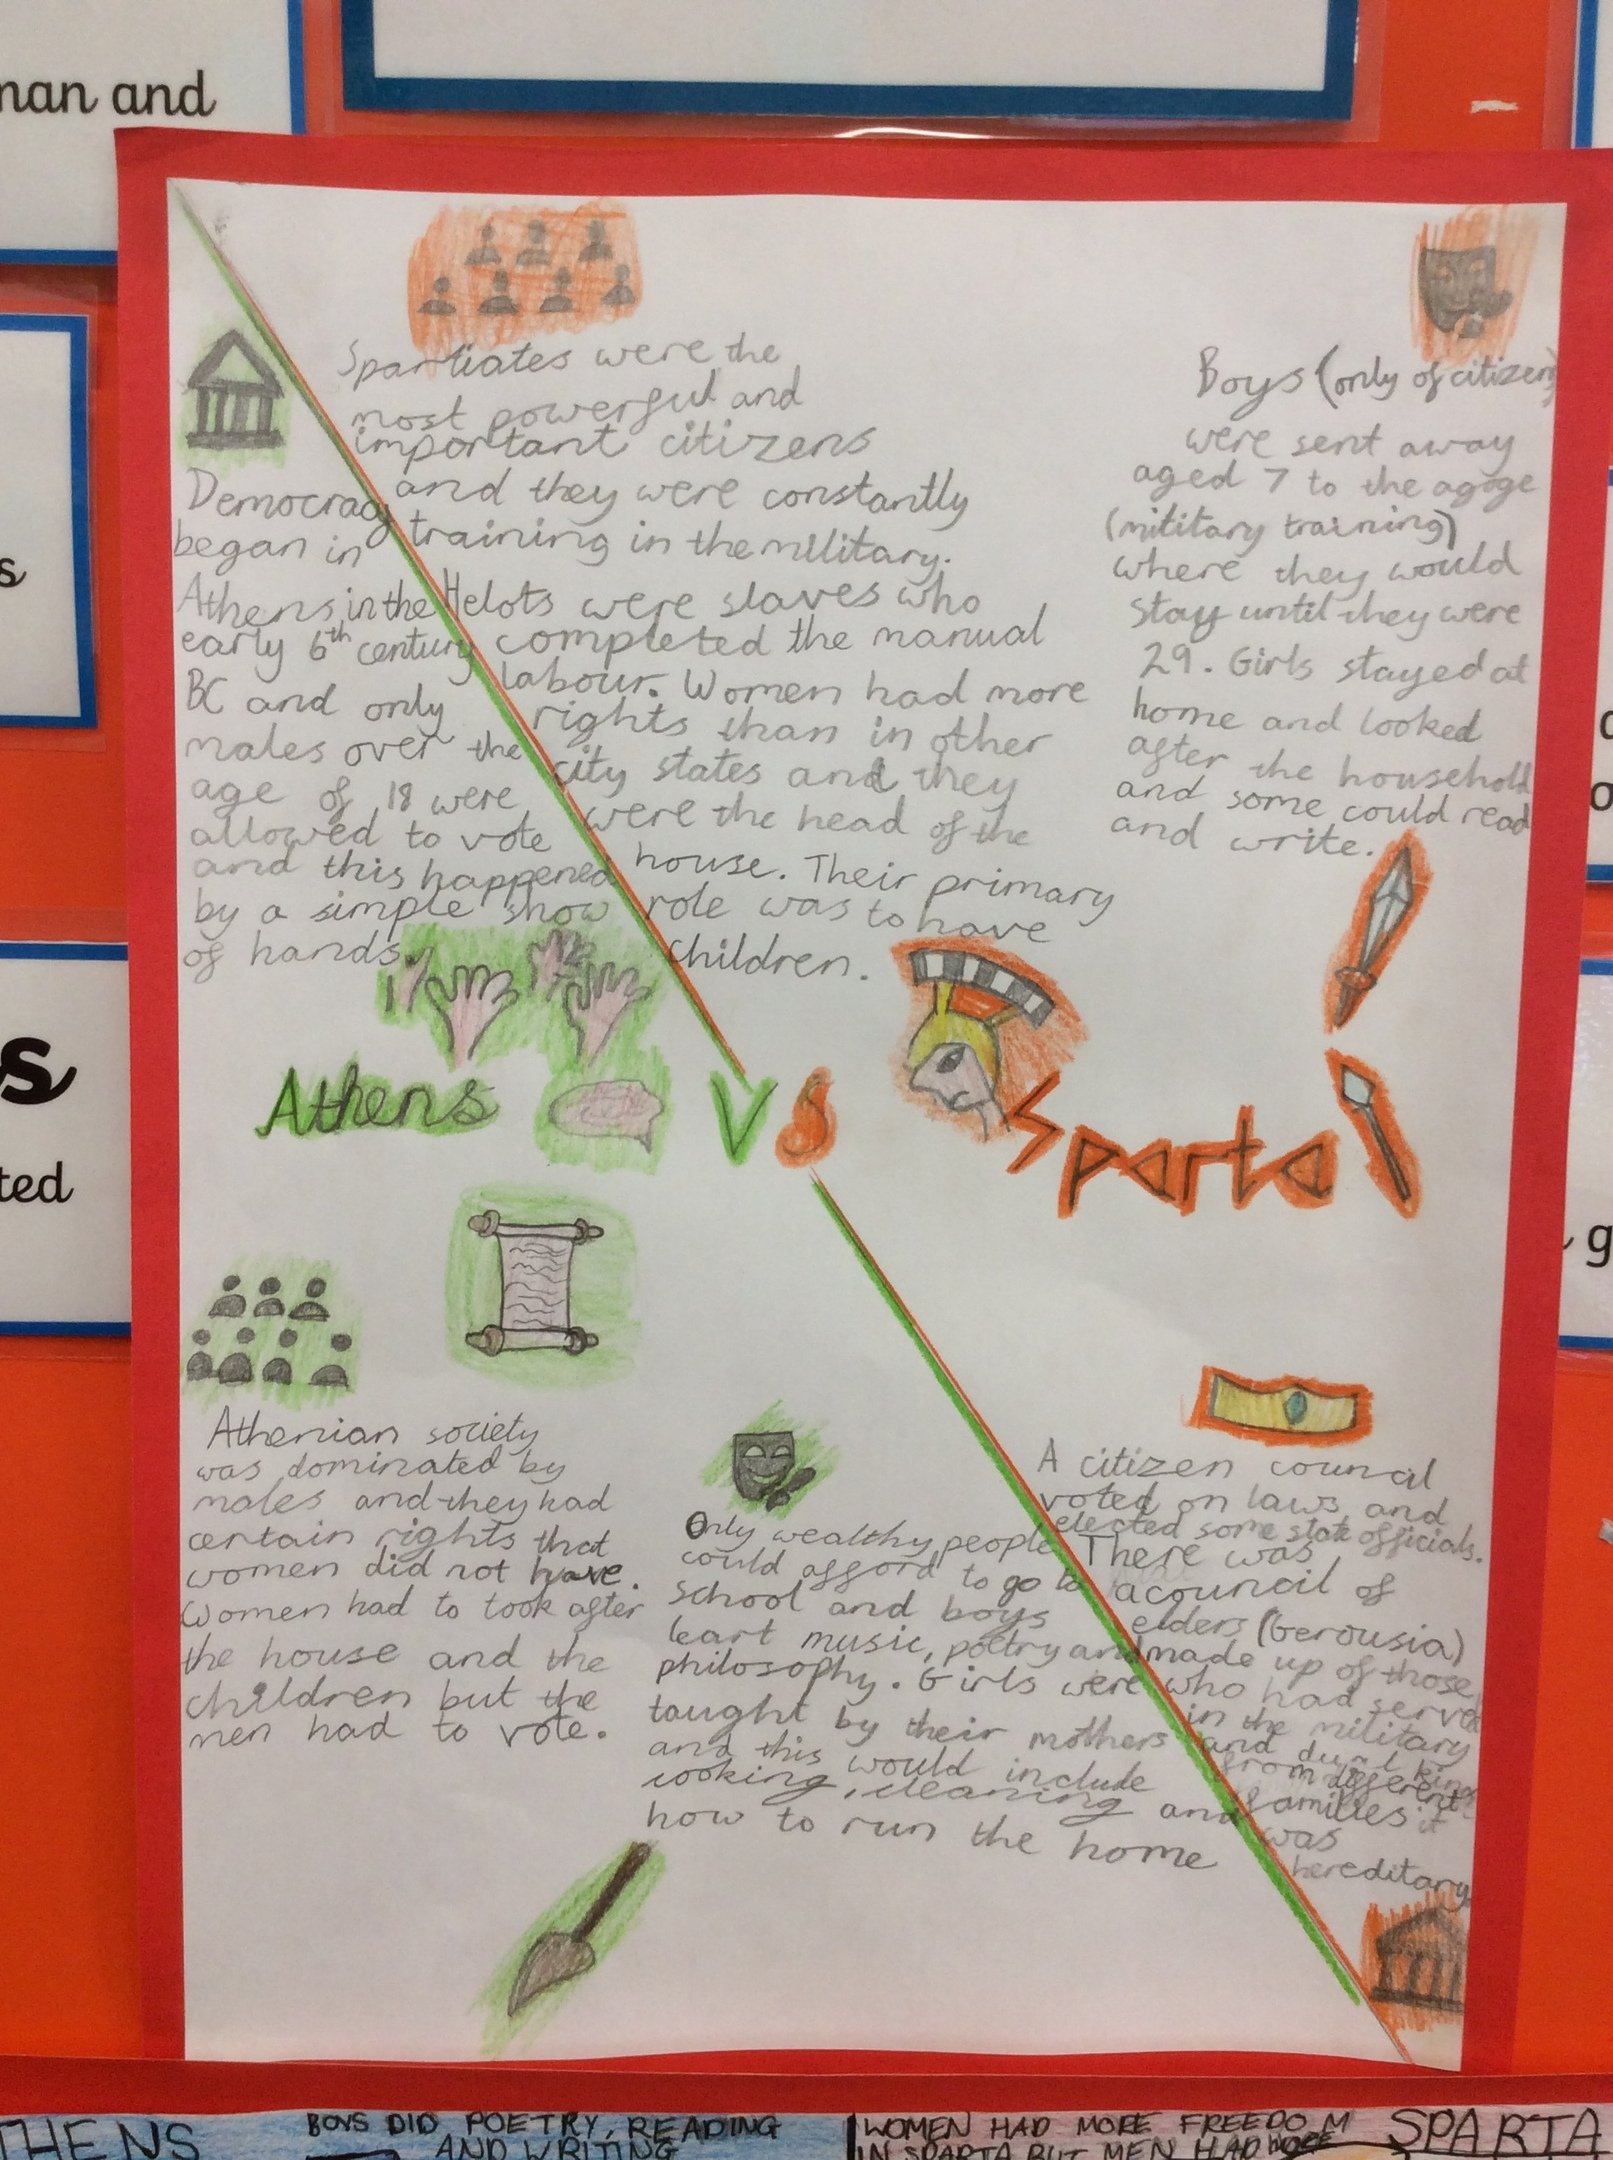 man and
Spartiates were the
most powerful and
important citizens
and they were constantly
training in the military.
Helots were slaves who
completed the manual
labour. Women had more
rights than in other
city states and they
were the head of the
house. Their primary
role was to have
children.
Boys (only of citizens)
were sent away
aged 7 to the agoge
(military training)
where they would
stay until they were
29. Girls stayed at
home and looked
after the household
and some could read
and write.
Democracy
began in
Athens in the
early 6th century
BC and only
males over the
age of 18 were
allowed to vote
and this happened
by a simple show
of hands.
Athens VS Sparta
Athenian society
was dominated by
males and they had
certain rights that
women did not have.
Women had to look after
the house and the
children but the
men had to vote.
Only wealthy people
could afford to go to
school and boys
leart music, poetry and
philosophy. Girls were
taught by their mothers
and this would include
cooking, cleaning and
how to run the home
A citizen council
voted on laws and
elected some state officials.
There was
a council of
elders (Gerousia)
made up of those
who had served
in the military
and dual kings
from different
families it
was
hereditary.
s
s
ted
g
THENS
BOYS DID POETRY, READING
AND WRITING
WOMEN HAD MORE FREEDOM
IN SPARTA BUT MEN HAD MORE
SPARTA